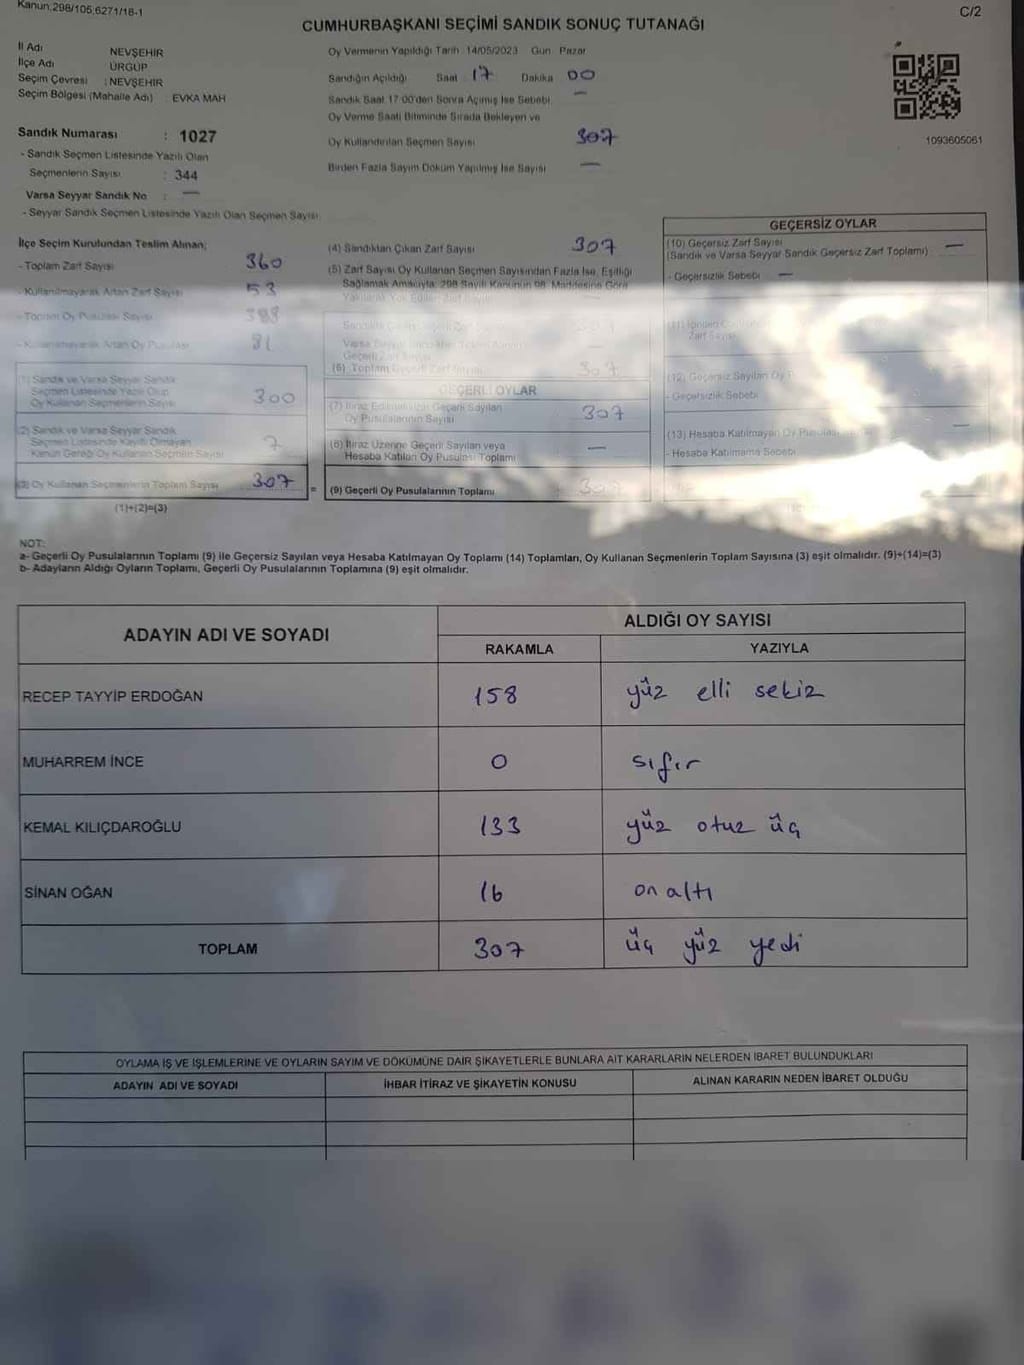 Kanun,298/105,6271/18-1
C/2
CUMHURBAŞKANI SEÇİMİ SANDIK SONUÇ TUTANAĞI
İl Adı NEVŞEHİR
İlçe Adı ÜRGÜP
Seçim Çevresi : NEVŞEHİR
Seçim Bölgesi (Mahalle Adı) : EVKA MAH
Oy Vermenin Yapıldığı Tarih 14/05/2023 Gün Pazar
Sandığın Açıldığı Saat 17 Dakika 00
Sandık Saat 17:00'den Sonra Açımış İse Sebebi —
Oy Verme Saati Bitiminde Sırada Bekleyen ve
Oy Kullandırılan Seçmen Sayısı 307
Birden Fazla Sayım Döküm Yapılmış İse Sayısı —
1093605061
Sandık Numarası : 1027
- Sandık Seçmen Listesinde Yazılı Olan
Seçmenlerin Sayısı : 344
Varsa Seyyar Sandık No : —
- Seyyar Sandık Seçmen Listesinde Yazılı Olan Seçmen Sayısı
İlçe Seçim Kurulundan Teslim Alınan;
- Toplam Zarf Sayısı 360
- Kullanılmayarak Artan Zarf Sayısı 53
- Toplam Oy Pusulası Sayısı
- Kullanılmayarak Artan Oy Pusulası 81
(1) Sandık ve Varsa Seyyar Sandık
Seçmen Listesinde Yazılı Olup
Oy Kullanan Seçmenlerin Sayısı 300
(2) Sandık ve Varsa Seyyar Sandık
Seçmen Listesinde Kayıtlı Olmayan
Kanun Gereği Oy Kullanan Seçmen Sayısı 7
(3) Oy Kullanan Seçmenlerin Toplam Sayısı 307
(1)+(2)=(3)
(4) Sandıktan Çıkan Zarf Sayısı 307
(5) Zarf Sayısı Oy Kullanan Seçmen Sayısından Fazla İse, Eşitliği
Sağlamak Amacıyla, 298 Sayılı Kanunun 98. Maddesine Göre
(6) Toplam Geçerli Zarf Sayısı 307
GEÇERLİ OYLAR
(7) İtiraz Edilmeksizin Geçerli Sayılan
Oy Pusulalarının Sayısı 307
(8) İtiraz Üzerine Geçerli Sayılan veya
Hesaba Katılan Oy Pusulası Toplamı —
= (9) Geçerli Oy Pusulalarının Toplamı 307
GEÇERSİZ OYLAR
(10) Geçersiz Zarf Sayısı —
(Sandık ve Varsa Seyyar Sandık Geçersiz Zarf Toplamı)
- Geçersizlik Sebebi —
Zarf Sayısı
(12) Geçersiz Sayılan Oy
- Geçersizlik Sebebi
(13) Hesaba Katılmayan Oy Pusulası —
- Hesaba Katılmama Sebebi
NOT:
a- Geçerli Oy Pusulalarının Toplamı (9) ile Geçersiz Sayılan veya Hesaba Katılmayan Oy Toplamı (14) Toplamları, Oy Kullanan Seçmenlerin Toplam Sayısına (3) eşit olmalıdır. (9)+(14)=(3)
b- Adayların Aldığı Oyların Toplamı, Geçerli Oy Pusulalarının Toplamına (9) eşit olmalıdır.
ADAYIN ADI VE SOYADI
ALDIĞI OY SAYISI
RAKAMLA YAZIYLA
RECEP TAYYİP ERDOĞAN 158 yüz elli sekiz
MUHARREM İNCE 0 sıfır
KEMAL KILIÇDAROĞLU 133 yüz otuz üç
SİNAN OĞAN 16 on altı
TOPLAM 307 üç yüz yedi
OYLAMA İŞ VE İŞLEMLERİNE VE OYLARIN SAYIM VE DÖKÜMÜNE DAİR ŞİKAYETLERLE BUNLARA AİT KARARLARIN NELERDEN İBARET BULUNDUKLARI
ADAYIN ADI VE SOYADI İHBAR İTİRAZ VE ŞİKAYETİN KONUSU ALINAN KARARIN NEDEN İBARET OLDUĞU